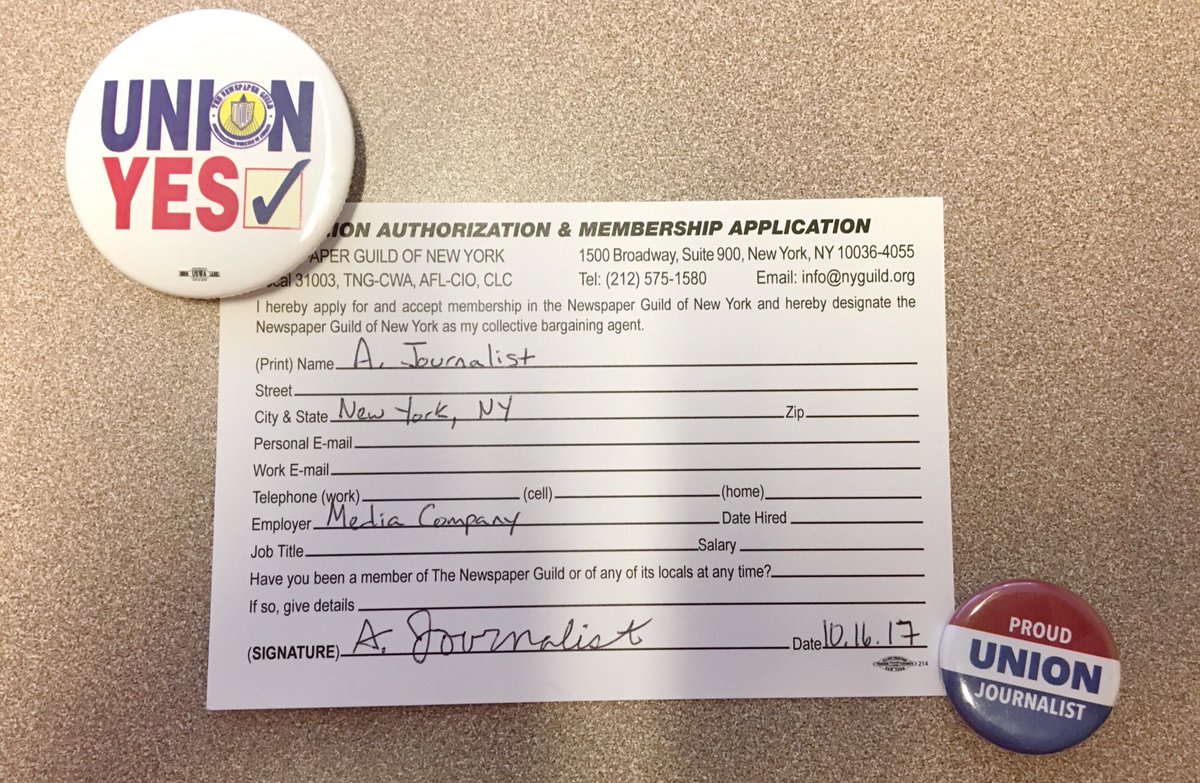 UNION
THE NEWSPAPER GUILD
YES
ION AUTHORIZATION & MEMBERSHIP APPLICATION
APER GUILD OF NEW YORK 1500 Broadway, Suite 900, New York, NY 10036-4055
cal 31003, TNG-CWA, AFL-CIO, CLC Tel: (212) 575-1580 Email: info@nyguild.org
I hereby apply for and accept membership in the Newspaper Guild of New York and hereby designate the
Newspaper Guild of New York as my collective bargaining agent.
(Print) Name A. Journalist
Street
City & State New York, NY Zip
Personal E-mail
Work E-mail
Telephone (work) (cell) (home)
Employer Media Company Date Hired
Job Title Salary
Have you been a member of The Newspaper Guild or of any of its locals at any time?
If so, give details
(SIGNATURE) A. Journalist Date 10.16.17
214
PROUD
UNION
JOURNALIST